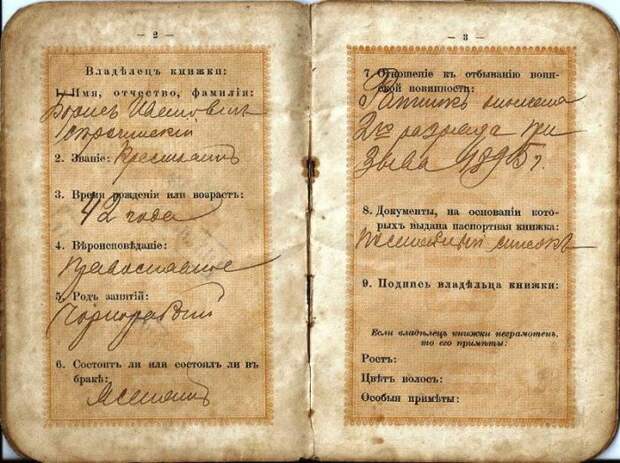 — 2 —
Владѣлецъ книжки:
1. Имя, отчество, фамилія:
Борисъ
2. Званіе: Крестьянинъ
3. Время рожденія или возрастъ:
42 года
4. Вѣроисповѣданіе:
Православное
5. Родъ занятій:
Чернорабочій
6. Состоитъ ли или состоялъ ли въ
бракѣ:
Женатъ
— 3 —
7. Отношеніе къ отбыванію воин-
ской повинности:
Ратникъ ополченія
2го разряда при
зыва 1895 г.
8. Документы, на основаніи кото-
рыхъ выдана паспортная книжка:
списокъ
9. Подпись владѣльца книжки:
Если владѣлецъ книжки неграмотенъ,
то его примѣты:
Ростъ:
Цвѣтъ волосъ:
Особыя примѣты: